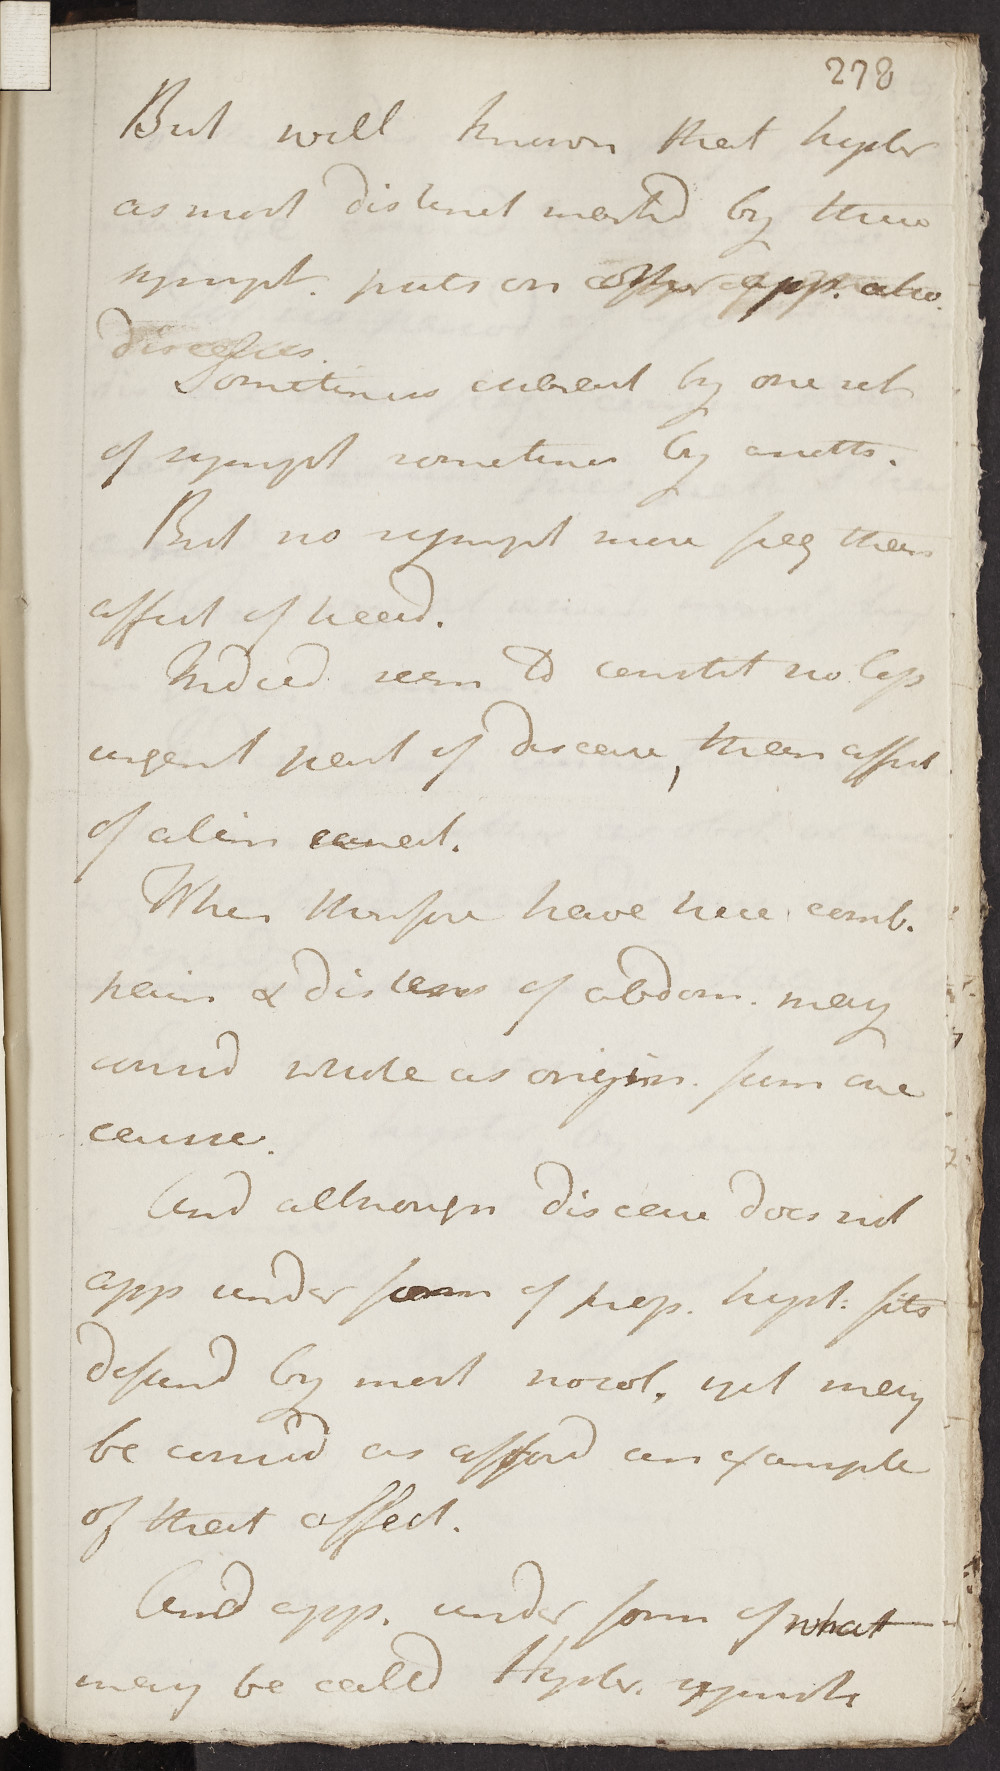 278
But well known that hyster
as most distinct markd by these
sympt. puts on other app. also.
diseases.
Sometimes evident by one set
of sympt sometimes by anoth.
But no sympt more freq than
affect of head.
Indeed seem to constit no less
urgent part of disease, than affect
of alim canal.
When therefore have here comb.
pain & distens of abdom. may
consid whole as origin. from one
cause.
And although disease does not
app under form of prop. hyst. fits
defined by most nosol. yet may
be consid as afford an example
of that affect.
And app. under form of what
may be calld Hyster.